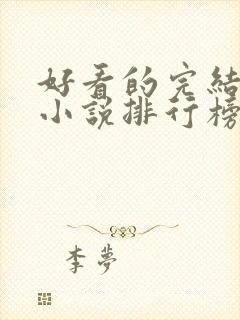 好看的完結
小說排行榜
李夢